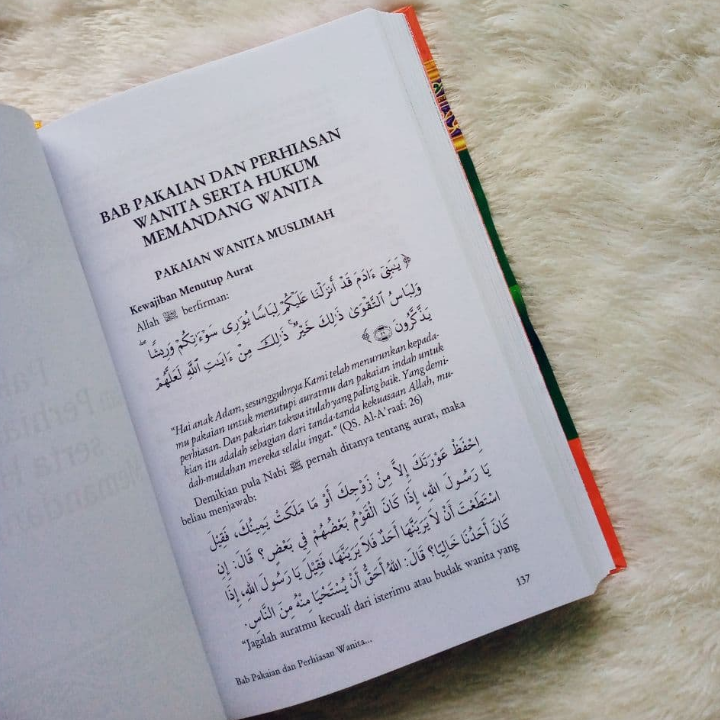 BAB PAKAIAN DAN PERHIASAN
WANITA SERTA HUKUM
MEMANDANG WANITA
PAKAIAN WANITA MUSLIMAH
Kewajiban Menutup Aurat
Allah ﷻ berfirman:
﴿ يَـٰبَنِىٓ ءَادَمَ قَدْ أَنزَلْنَا عَلَيْكُمْ لِبَاسًا يُوَٰرِى سَوْءَٰتِكُمْ وَرِيشًا ۖ
وَلِبَاسُ ٱلتَّقْوَىٰ ذَٰلِكَ خَيْرٌ ۚ ذَٰلِكَ مِنْ ءَايَـٰتِ ٱللَّهِ لَعَلَّهُمْ
يَذَّكَّرُونَ ٢٦ ﴾
"Hai anak Adam, sesungguhnya Kami telah menurunkan kepada-
mu pakaian untuk menutupi auratmu dan pakaian indah untuk
perhiasan. Dan pakaian takwa itulah yang paling baik. Yang demi-
kian itu adalah sebagian dari tanda-tanda kekuasaan Allah, mu-
dah-mudahan mereka selalu ingat." (QS. Al-A'raaf: 26)
Demikian pula Nabi ﷺ pernah ditanya tentang aurat, maka
beliau menjawab:
اِحْفَظْ عَوْرَتَكَ إِلاَّ مِنْ زَوْجِكَ أَوْ مَا مَلَكَتْ يَمِيْنُكَ، فَقِيْلَ
يَا رَسُوْلَ اللهِ، إِذَا كَانَ الْقَوْمُ بَعْضُهُمْ فِي بَعْضٍ؟ قَالَ: إِنِ
اسْتَطَعْتَ أَنْ لاَ يَرَيَنَّهَا أَحَدٌ فَلاَ يَرَيَنَّهَا، فَقِيْلَ يَا رَسُوْلَ اللهِ، إِذَا
كَانَ أَحَدُنَا خَالِيًا؟ قَالَ: اللهُ أَحَقُّ أَنْ يُسْتَحْيَا مِنْهُ مِنَ النَّاسِ.
"Jagalah auratmu kecuali dari isterimu atau budak wanita yang
137
Bab Pakaian dan Perhiasan Wanita...